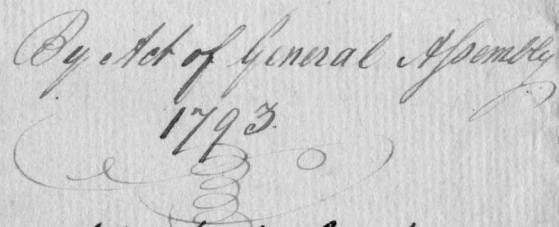 By Act of General Assembly
1793.